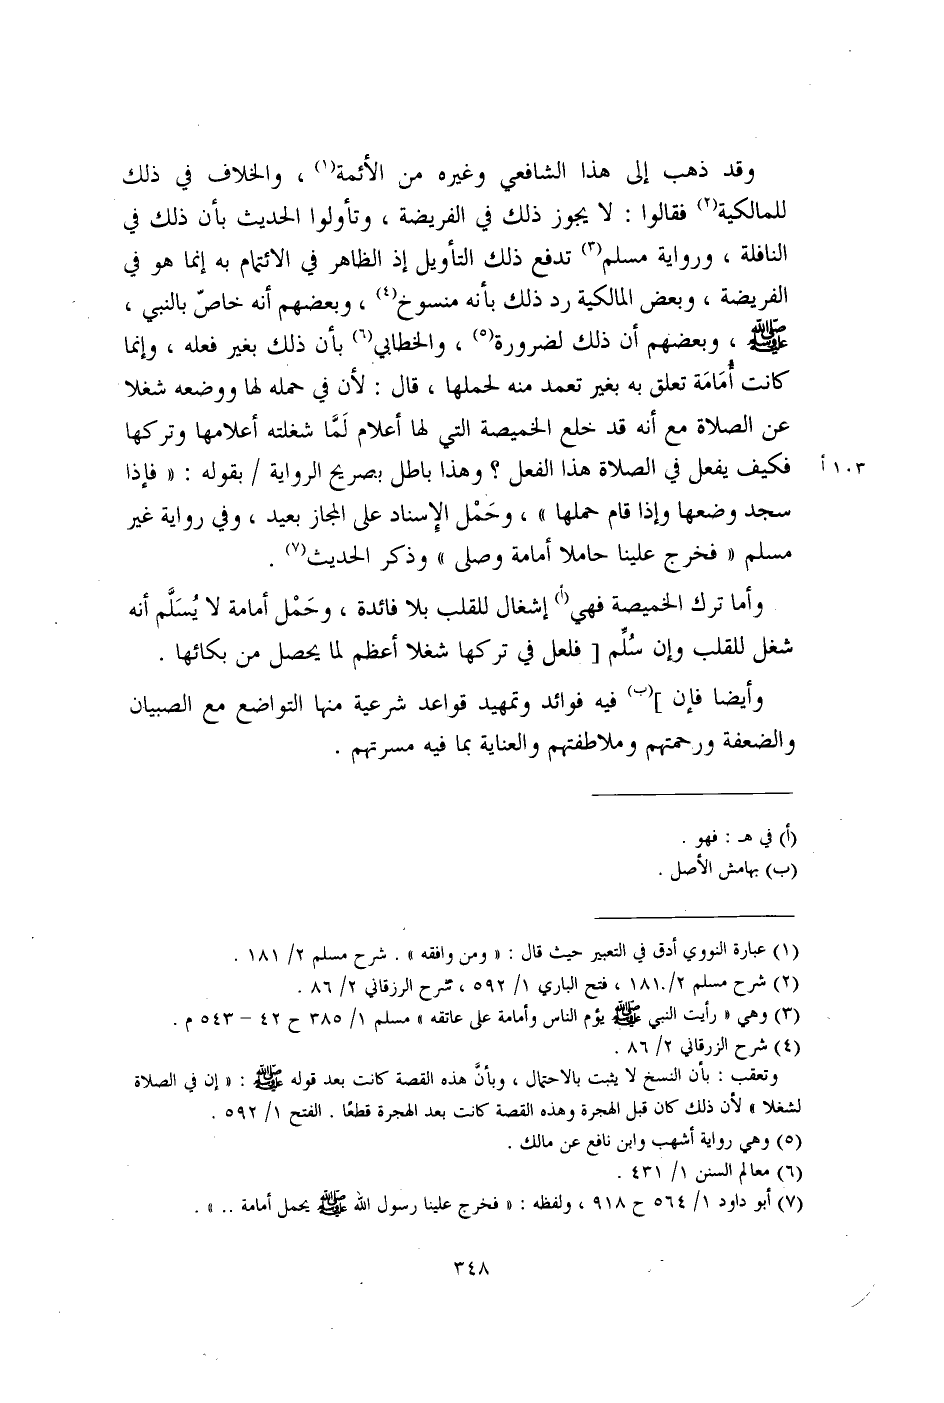 وقد ذهب إلى هذا الشافعي وغيره من الأئمة(١) ، والخلاف في ذلك
للمالكية(٢) فقالوا : لا يجوز ذلك في الفريضة ، وتأولوا الحديث بأن ذلك في
النافلة ، ورواية مسلم(٣) تدفع ذلك التأويل إذ الظاهر في الائتمام به إنما هو في
الفريضة ، وبعض المالكية رد ذلك بأنه منسوخ(٤) ، وبعضهم أنه خاصّ بالنبي ،
ﷺ ، وبعضهم أن ذلك لضرورة(٥) ، والخطابي(٦) بأن ذلك بغير فعله ، وإنما
كانت أُمَامَة تعلق به بغير تعمد منه لحملها ، قال : لأن في حمله لها ووضعه شغلا
عن الصلاة مع أنه قد خلع الخميصة التي لها أعلام لَمَّا شغلته أعلامها وتركها
فكيف يفعل في الصلاة هذا الفعل ؟ وهذا باطل بصريح الرواية / بقوله : « فإذا ١٠٣ أ
سجد وضعها وإذا قام حملها » ، وحَمْل الإسناد على المجاز بعيد ، وفي رواية غير
مسلم « فخرج علينا حاملا أمامة وصلى » وذكر الحديث(٧) .
وأما ترك الخميصة فهي(أ) إشغال للقلب بلا فائدة ، وحَمْل أمامة لا يُسَلَّم أنه
شغل للقلب وإن سُلِّم [ فلعل في تركها شغلا أعظم لما يحصل من بكائها .
وأيضا فإن ](ب) فيه فوائد وتمهيد قواعد شرعية منها التواضع مع الصبيان
والضعفة ورحمتهم وملاطفتهم والعناية بما فيه مسرتهم .
(أ) في هـ : فهو .
(ب) بهامش الأصل .
(١) عبارة النووي أدق في التعبير حيث قال : « ومن وافقه » . شرح مسلم ٢/ ١٨١ .
(٢) شرح مسلم ٢/ ١٨١ ، فتح الباري ١/ ٥٩٢ ، شرح الرزقاني ٢/ ٨٦ .
(٣) وهي « رأيت النبي ﷺ يؤم الناس وأمامة على عاتقه » مسلم ١/ ٣٨٥ ح ٤٢ – ٥٤٣ م .
(٤) شرح الزرقاني ٢/ ٨٦ .
وتعقب : بأن النسخ لا يثبت بالاحتمال ، وبأنَّ هذه القصة كانت بعد قوله ﷺ : « إن في الصلاة
لشغلا » لأن ذلك كان قبل الهجرة وهذه القصة كانت بعد الهجرة قطعًا . الفتح ١/ ٥٩٢ .
(٥) وهي رواية أشهب وابن نافع عن مالك .
(٦) معالم السنن ١/ ٤٣١ .
(٧) أبو داود ١/ ٥٦٤ ح ٩١٨ ، ولفظه : « فخرج علينا رسول الله ﷺ يحمل أمامة .. » .
٣٤٨